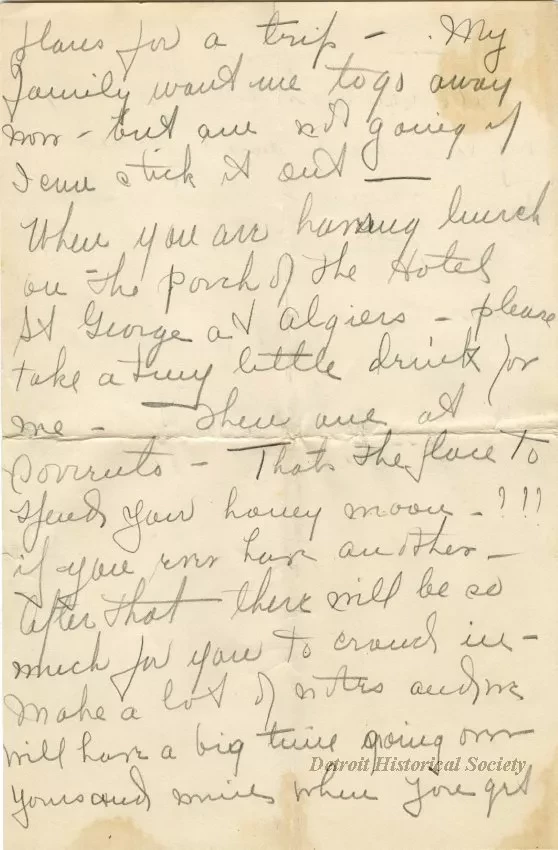 places for a trip - My
family want me to go away
now - but am not going if
I can stick it out —
When you are having lunch
on the porch of the Hotel
St George at Algiers - please
take a tiny little drink for
me - Then one at
Sorrento - That's the place to
spend your honey moon - !!!
if you ever have another -
After that there will be so
much for you to crowd in -
Make a lot of notes and we
will have a big time going over
yours and mine when you get
Detroit Historical Society